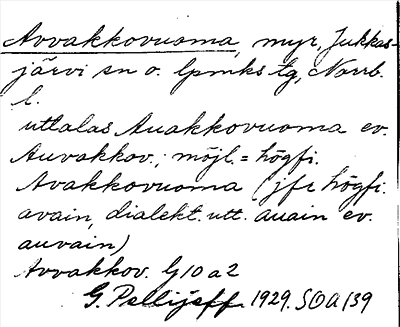 Avvakkovuoma, myr, Jukkas-
järvi sn o. lpmks tg, Norrb.
l.
uttalas Auakkovuoma ev.
Auvakkov.; möjl. = högfi.
Avakkovuoma (jfr högfi.
avain, dialekt. utt. auain ev.
auvain)
Avvakkov. G10a2
G. Pellijeff 1929. SOA 139